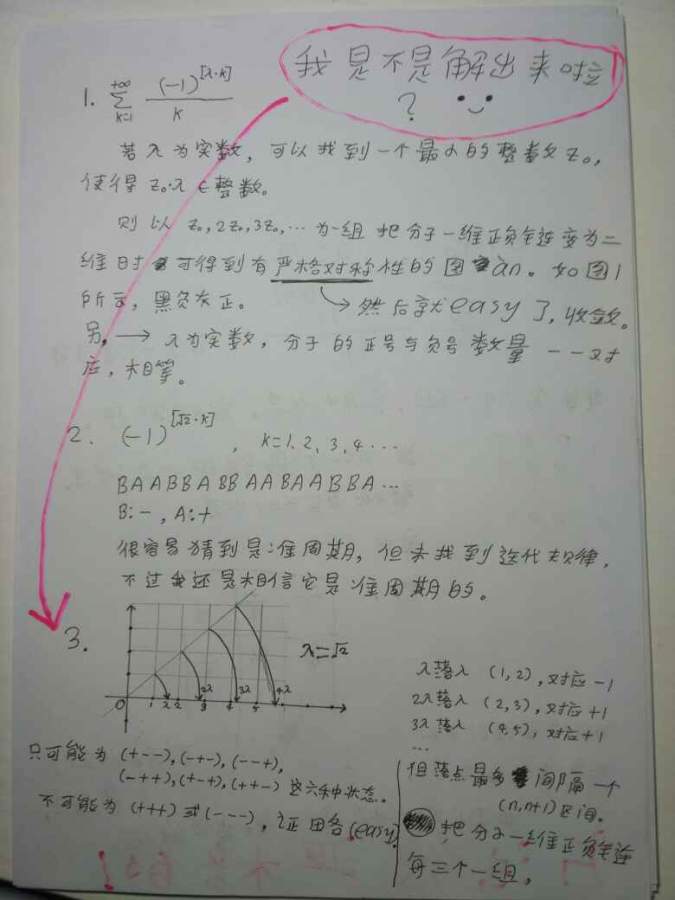 我是不是解出来啦
?
1. +∞ ∑ k=1 (-1)^[λ·k] / k
若λ为实数，可以找到一个最小的整数Z₀，
使得Z₀·λ∈整数。
则以 Z₀, 2Z₀, 3Z₀, … 为一组 把分子一维正负
变为二
维时可得到有严格对称性的图 an。如图1
所示，黑负灰正。 → 然后就easy了，收敛。
另，→ λ为实数，分子的正号与负号数量 一一对
应，相等。
2. (-1)^[√2·k] , k=1, 2, 3, 4 …
BAABBABBAABAABBA…
B:-, A:+
很容易猜到是准周期，但未找到迭代规律，
不过我还是相信它是准周期的。
3.
λ=√2
0 1 λ 2 2λ 3 4 3λ 5 4λ
λ落入 (1,2), 对应 -1
2λ落入 (2,3), 对应 +1
3λ落入 (4,5), 对应 +1
…
只可能为 (+--), (-+-), (--+),
(-++), (+-+), (++-) 这六种状态。
不可能为 (+++) 或 (---)，证明略 (easy)
但落点最多 间隔一个
(n,n+1)区间。
把分子一维正负
每三个一组，